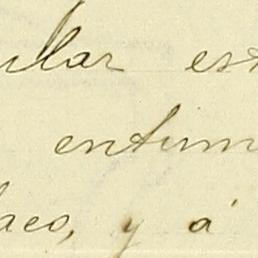 ular est
entum
laeo, y á